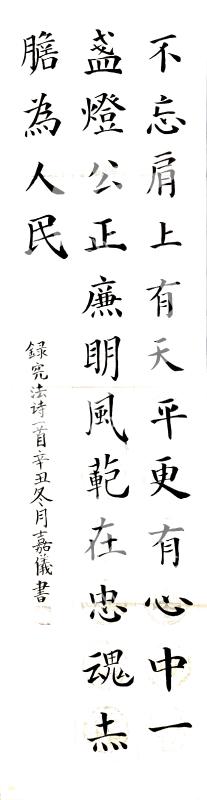 不忘肩上有天平更有心中一
盏燈公正廉明風範在忠魂赤
膽為人民
録宪法诗一首辛丑冬月嘉儀書